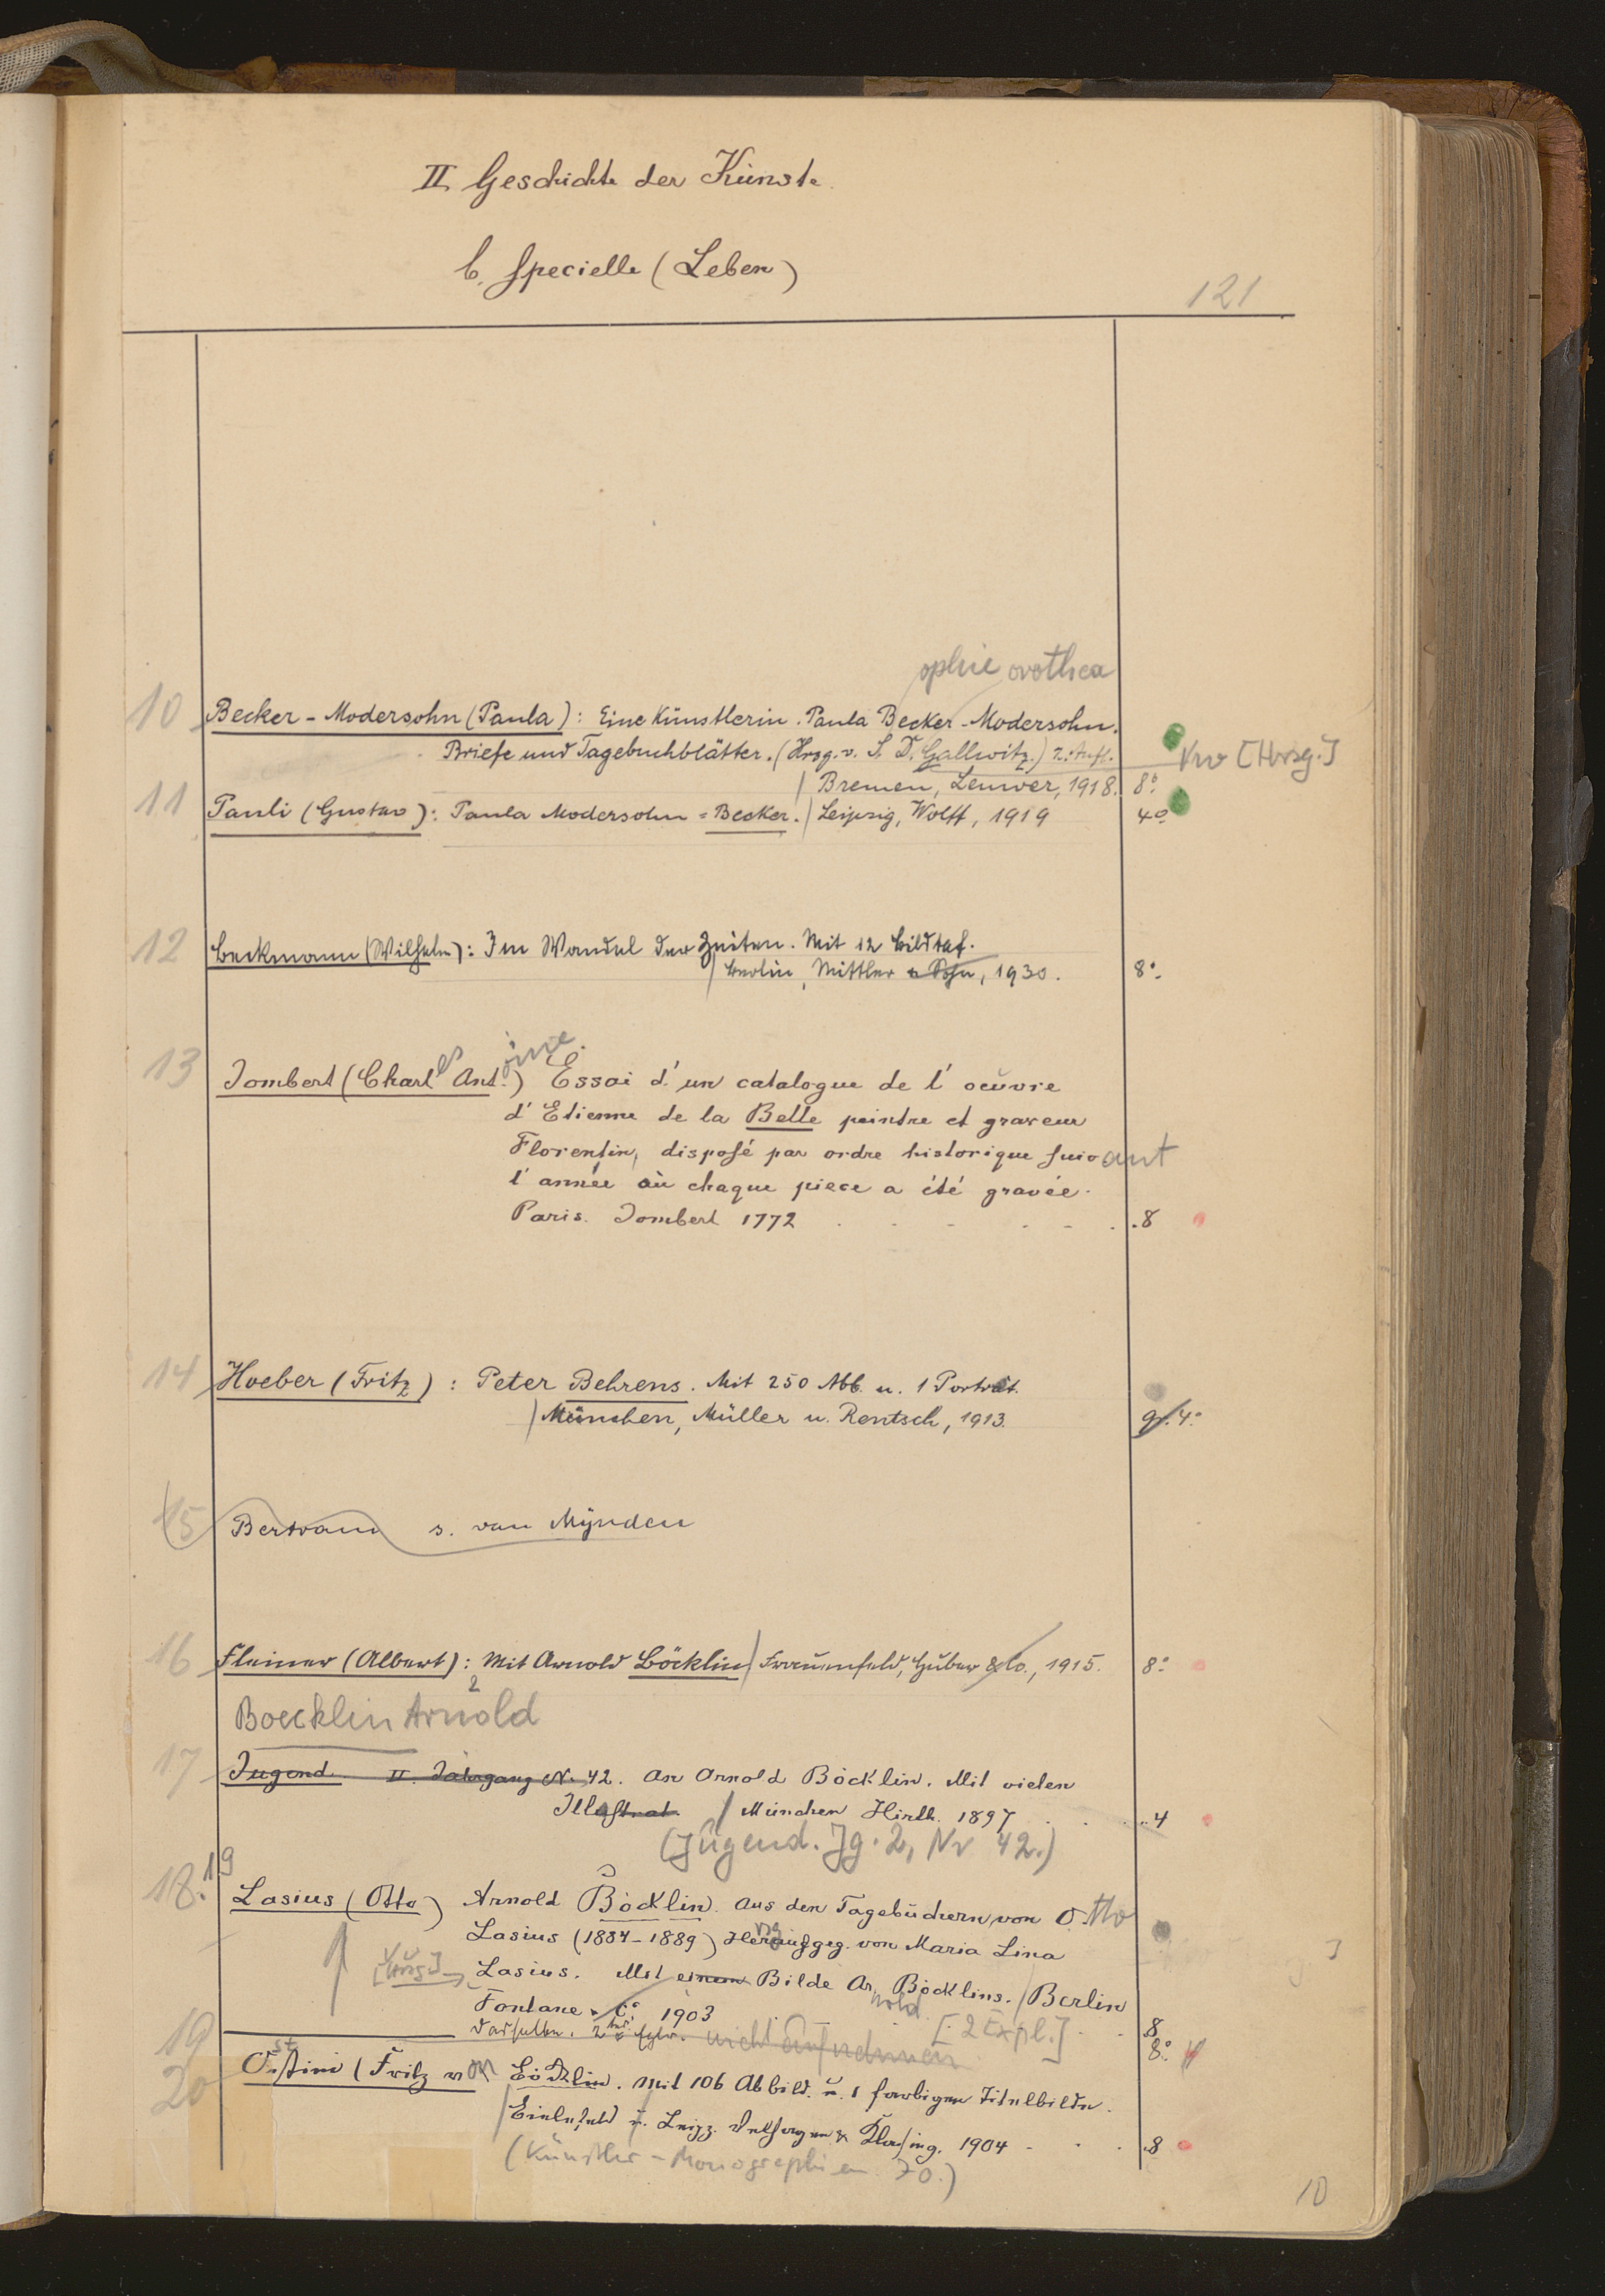 II Geschichte der Künste.
b. Specielle (Leben)
121
ophie orothea
10 Becker-Modersohn (Paula): Eine Künstlerin. Paula Becker-Modersohn.
Briefe und Tagebuchblätter. (Hrsg. v. S. D. Gallwitz.) 2. Aufl. Vw [Hrsg.]
/ Bremen, Leuwer, 1918. 8º
11 Pauli (Gustav): Paula Modersohn=Becker. / Leipzig, Wolff, 1919 4º
12 Beckmann (Wilhelm): Im Wandel der Zeiten. Mit 12 Bildtaf.
/ Berlin, Mittler & Sohn, 1930. 8º
13 Jombert (Charles Antoine.) Essai d'un catalogue de l'oeuvre
d'Etienne de la Belle peintre et graveur
Florentin, disposé par ordre historique suivant
l'année où chaque piece a été gravée.
Paris. Jombert 1772 . . . . . 8
14 Hoeber (Fritz): Peter Behrens. Mit 250 Abb. u. 1 Porträt.
/ München, Müller u. Rentsch, 1913. gr. 4º
15 Bertram s. van Mynden
16 Fleiner (Albert): Mit Arnold Böcklin / Frauenfeld, Huber & Co., 1915. 8º
2
Boecklin Arnold
17 Jugend. II. Jahrgang N. 42. An Arnold Böcklin. Mit vielen
Illustrat. / München Hirth. 1897 . . . 4
(Jugend. Jg. 2, Nr 42.)
18.19 Lasius (Otto) Arnold Böcklin. Aus den Tagebüchern von Otto
Lasius (1884-1889) Herausgeg. von Maria Lina
[Hrsg.] Lasius. Mit einem Bilde Arnold Böcklins. / Berlin
Fontane & Cº 1903 [2 Expl.] . . 8
19 Dasselbe. 2tes Explr. nicht aufnehmen 8º
20 Ostini (Fritz von) Böcklin. Mit 106 Abbild. u. 1 farbigen Titelbilde.
/ Bielefeld u. Leipz. Velhagen & Klasing. 1904 . . . 8
(Künstler-Monographien. 70.)
10